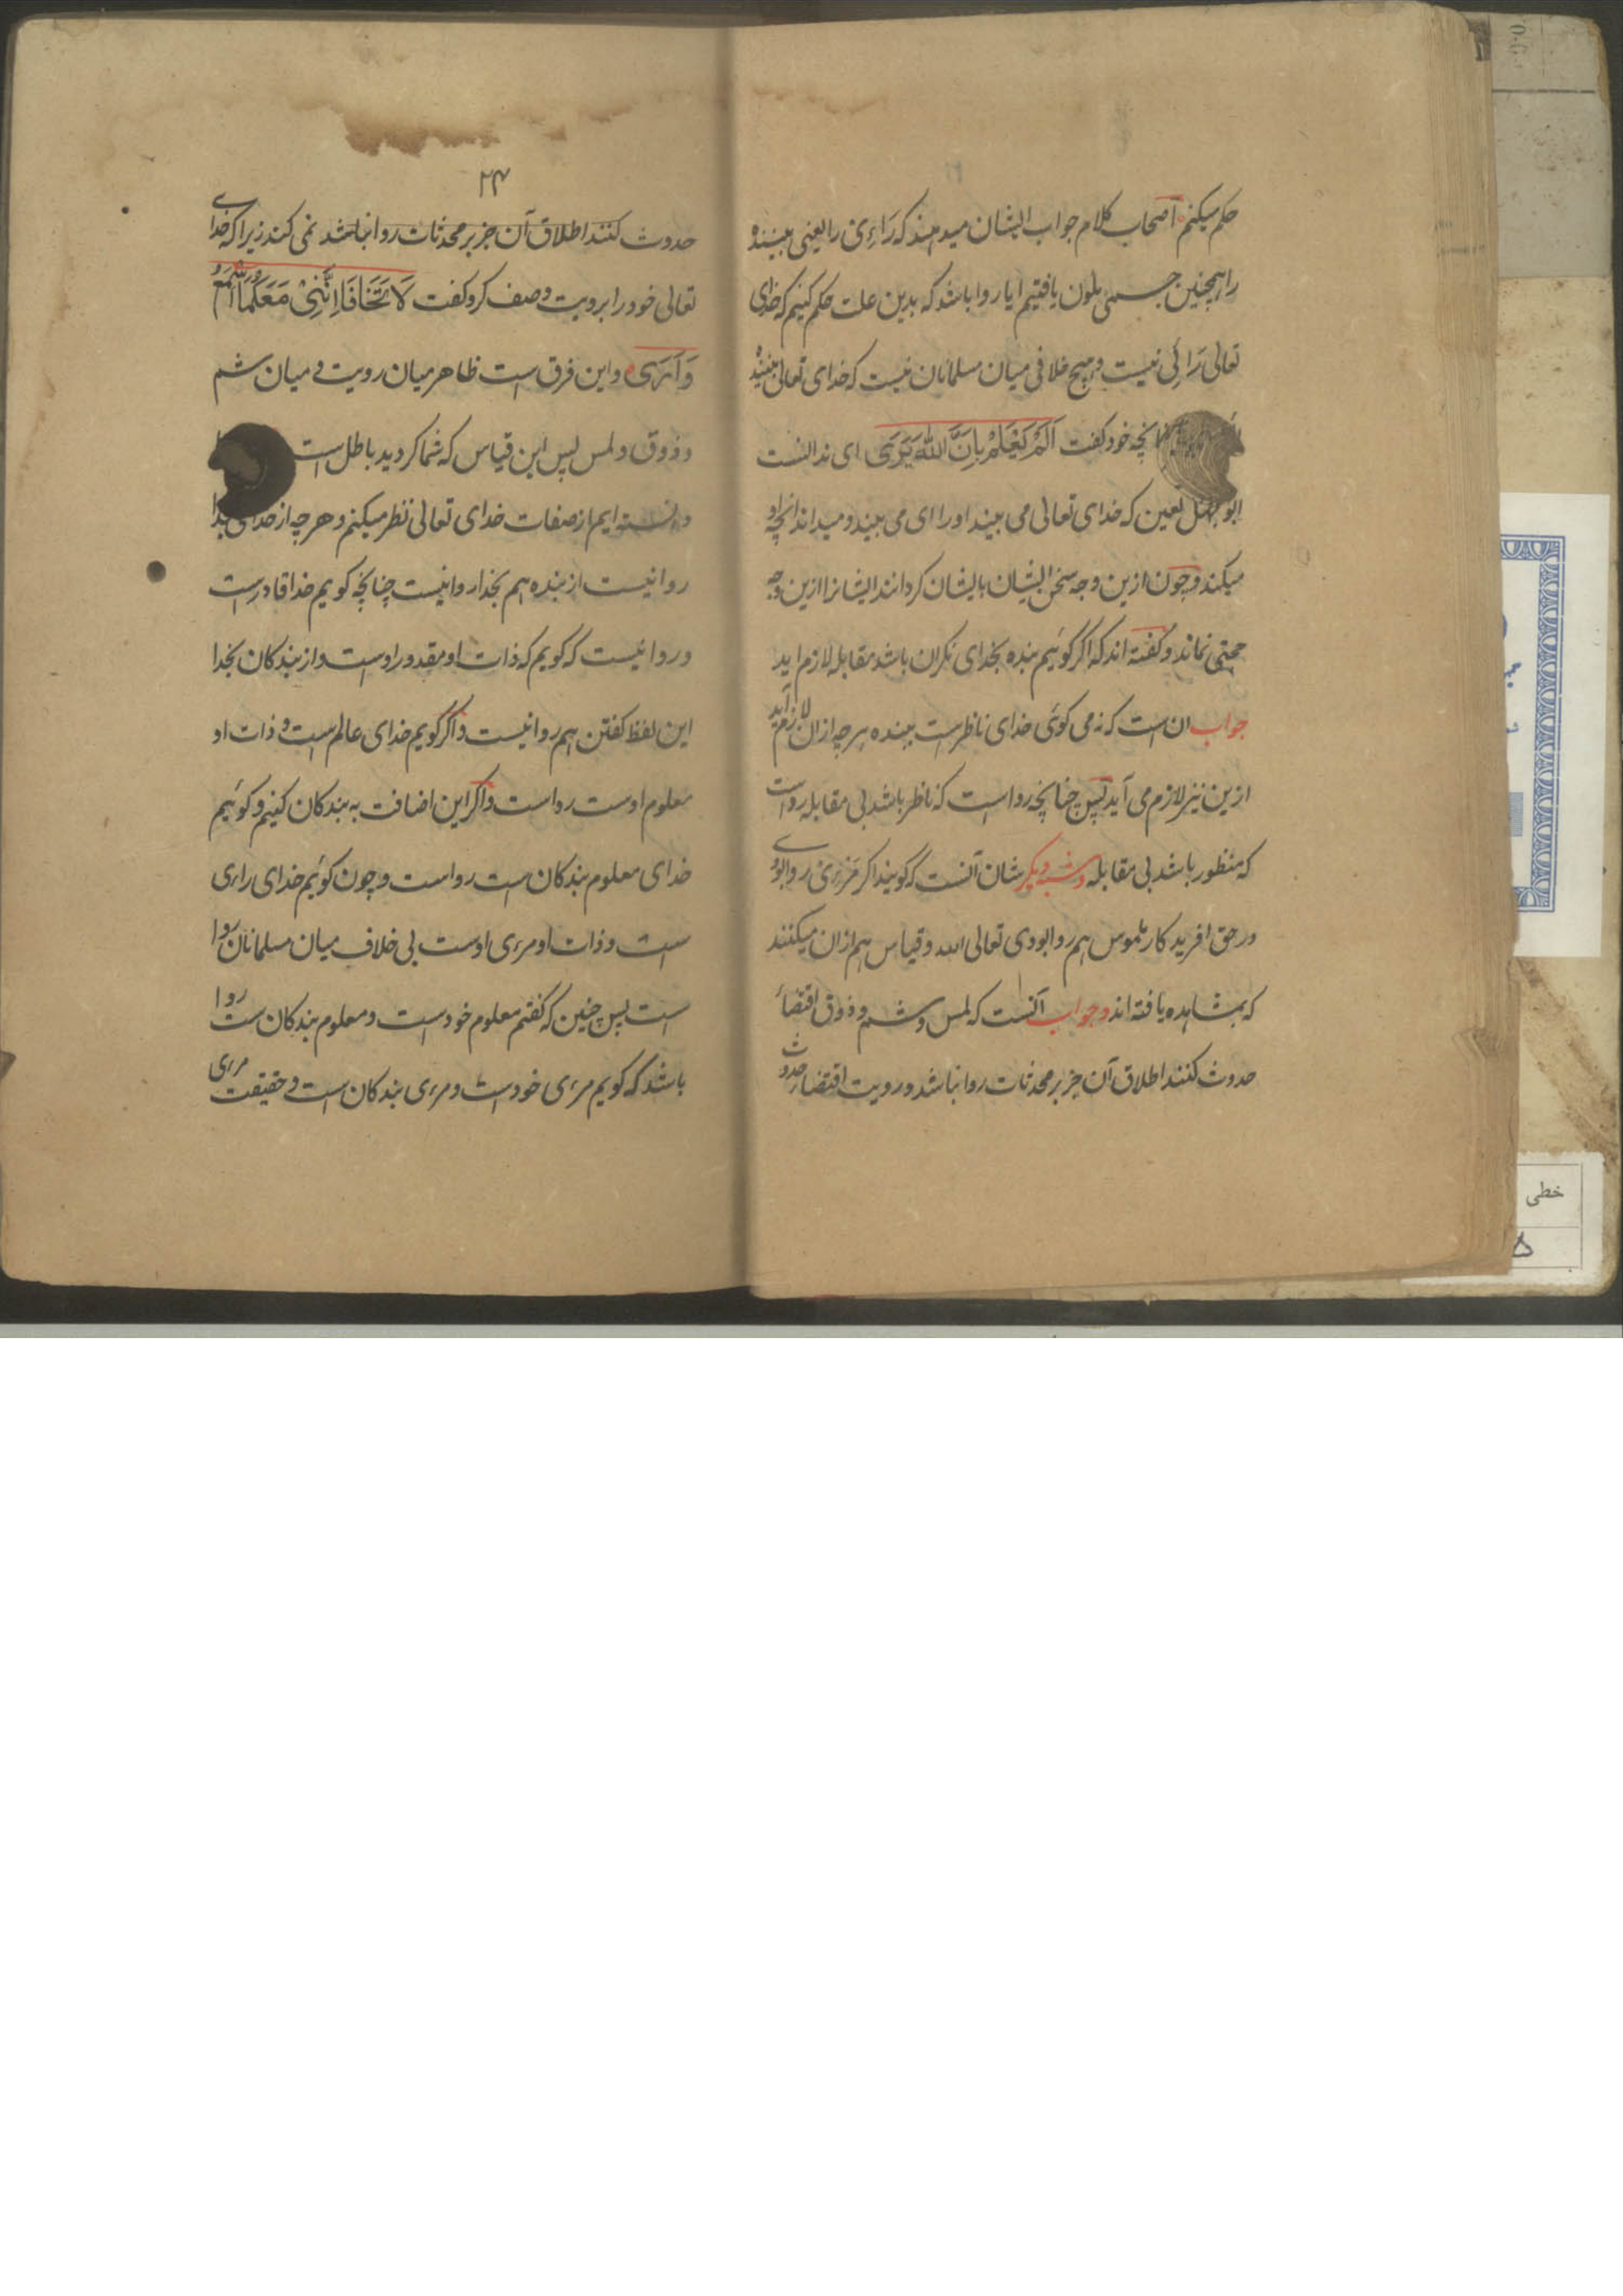 حکم میکنم اصحاب کلام جواب ایشان میدهند که رَاءِی را یعنی بیننده
را همچنین جسمی ملون یافتیم ایا روا باشد که بدین علت حکم کنیم که خدای
تعالی رَائی نیست و هیچ خلافی میان مسلمانان نیست که خدای تعالی بیننده
چنانچه خود کفت اَلَمْ یَعْلَمْ بِاَنَّ اللّٰهَ یَرٰی ای ندانست
ابو جهل لعین که خدای تعالی می بیند او را ای می بیند و میداند انچه او
میکند و چون ازین وجه سخن ایشان بایشان کردانند ایشانرا ازین وجه
حجتی نماند و کفته اند که اکر کوئیم بنده بخدای نکران باشد مقابله لازم اید
جواب ان است که نه می کوئی خدای ناظر است ببنده هر چه ازان لازم آید
ازین نیز لازم می آید پس چنانچه روا است که ناظر باشد بی مقابله رواست
که منظور باشد بی مقابله و شبه دیکر شان آنست که کویند اکر مَرئی روا بودی
در حق افریدکار ملموس هم روا بودی تعالی الله و قیاس هم ازان میکنند
که بمشاهده یافته اند و جواب آنست که لمس و شم و ذوق اقتضاء
حدوث کنند اطلاق آن جز بر محدثات روا نباشد و رویت اقتضار حدوث
۲۴
حدوث کنند اطلاق آن جز بر محدثات روا نباشد نمی کند زیرا که خدای
تعالی خود را برویت وصف کرد و کفت لَا تَخَافَا اِنَّنِیْ مَعَکُمَا اَسْمَعُ
وَاَرٰی و این فرق است ظاهر میان رویت و میان شم
و ذوق و لمس پس این قیاس که شما کردید باطل است
دانسته ایم از صفات خدای تعالی نظر میکنم و هر چه از خدای بخدا
روا نیست از بنده هم بخدا روا نیست چنانچه کویم خدا قادرست
و روا نیست که کویم که ذات او مقدور اوست و از بندکان بخدا
این لفظ کفتن هم روا نیست و اکر کویم خدای عالم است و ذات او
معلوم اوست روا است و اکر این اضافت به بندکان کنیم و کوئیم
خدای معلوم بندکان است روا است و چون کوئیم خدای راءی
است و ذات او مرءی اوست بی خلاف میان مسلمانان روا
است پس چنین که کفتم معلوم خودست و معلوم بندکان ست روا
باشد که کویم مرءی خودست و مرءی بندکان است و حقیقت مرءی
خطی